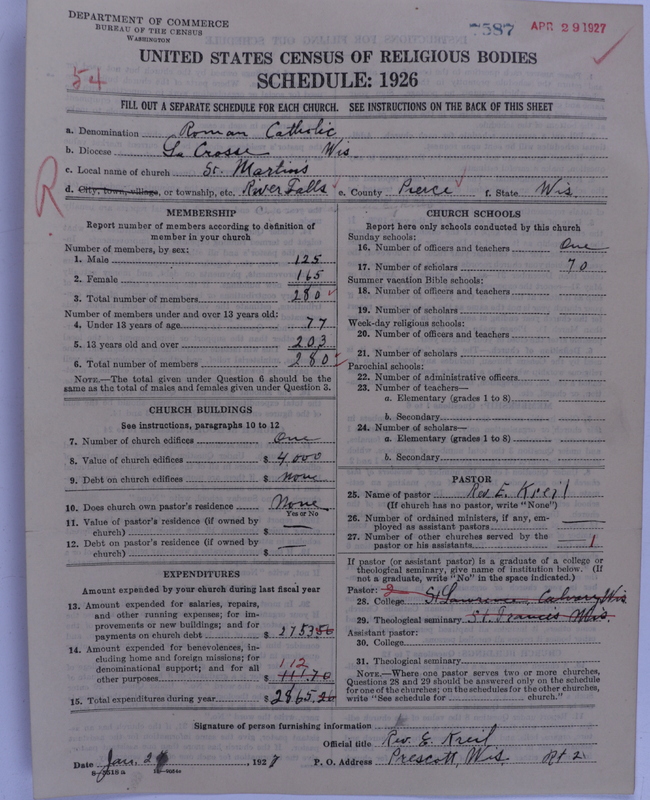 DEPARTMENT OF COMMERCE
BUREAU OF THE CENSUS
WASHINGTON
7587
APR 29 1927
UNITED STATES CENSUS OF RELIGIOUS BODIES
54
SCHEDULE: 1926
FILL OUT A SEPARATE SCHEDULE FOR EACH CHURCH. SEE INSTRUCTIONS ON THE BACK OF THIS SHEET
a. Denomination Roman Catholic
b. Diocese La Crosse Wis
c. Local name of church St. Martins
d. City, town, village, or township, etc. River Falls e. County Pierce f. State Wis.
R
MEMBERSHIP
Report number of members according to definition of
member in your church
Number of members, by sex:
1. Male 125
2. Female 165
3. Total number of members 280
Number of members under and over 13 years old:
4. Under 13 years of age 77
5. 13 years old and over 203
6. Total number of members 280
NOTE.—The total given under Question 6 should be the
same as the total of males and females given under Question 3.
CHURCH BUILDINGS
See instructions, paragraphs 10 to 12
7. Number of church edifices One
8. Value of church edifices $ 4,000
9. Debt on church edifices $ none
10. Does church own pastor's residence None
Yes or No
11. Value of pastor's residence (if owned by
church) $ —
12. Debt on pastor's residence (if owned by
church) $ —
EXPENDITURES
Amount expended by your church during last fiscal year
13. Amount expended for salaries, repairs,
and other running expenses; for im-
provements or new buildings; and for
payments on church debt $ 2753 50
14. Amount expended for benevolences, in-
cluding home and foreign missions; for
denominational support; and for all
112
other purposes $ 111.70
15. Total expenditures during year $ 2865.20
CHURCH SCHOOLS
Report here only schools conducted by this church
Sunday schools:
16. Number of officers and teachers One
17. Number of scholars 70
Summer vacation Bible schools:
18. Number of officers and teachers
19. Number of scholars
Week-day religious schools:
20. Number of officers and teachers
21. Number of scholars
Parochial schools:
22. Number of administrative officers
23. Number of teachers—
a. Elementary (grades 1 to 8)
b. Secondary
24. Number of scholars—
a. Elementary (grades 1 to 8)
b. Secondary
PASTOR
25. Name of pastor Rev E. Kreil
(If church has no pastor, write "None")
26. Number of ordained ministers, if any, em-
ployed as assistant pastors —
27. Number of other churches served by the
pastor or his assistants 1
If pastor (or assistant pastor) is a graduate of a college or
theological seminary, give name of institution below. (If
not a graduate, write "No" in the space indicated.)
Pastor: 2
28. College St Lawrence, Calvary Wis
29. Theological seminary St. Francis Wis.
Assistant pastor:
30. College
31. Theological seminary
NOTE.—Where one pastor serves two or more churches,
Questions 28 and 29 should be answered only on the schedule
for one of the churches; on the schedules for the other churches,
write "See schedule for church."
Signature of person furnishing information
Official title Rev. E. Kreil
Date Jan. 2 , 1927 P. O. Address Prescott, Wis. Rt 2